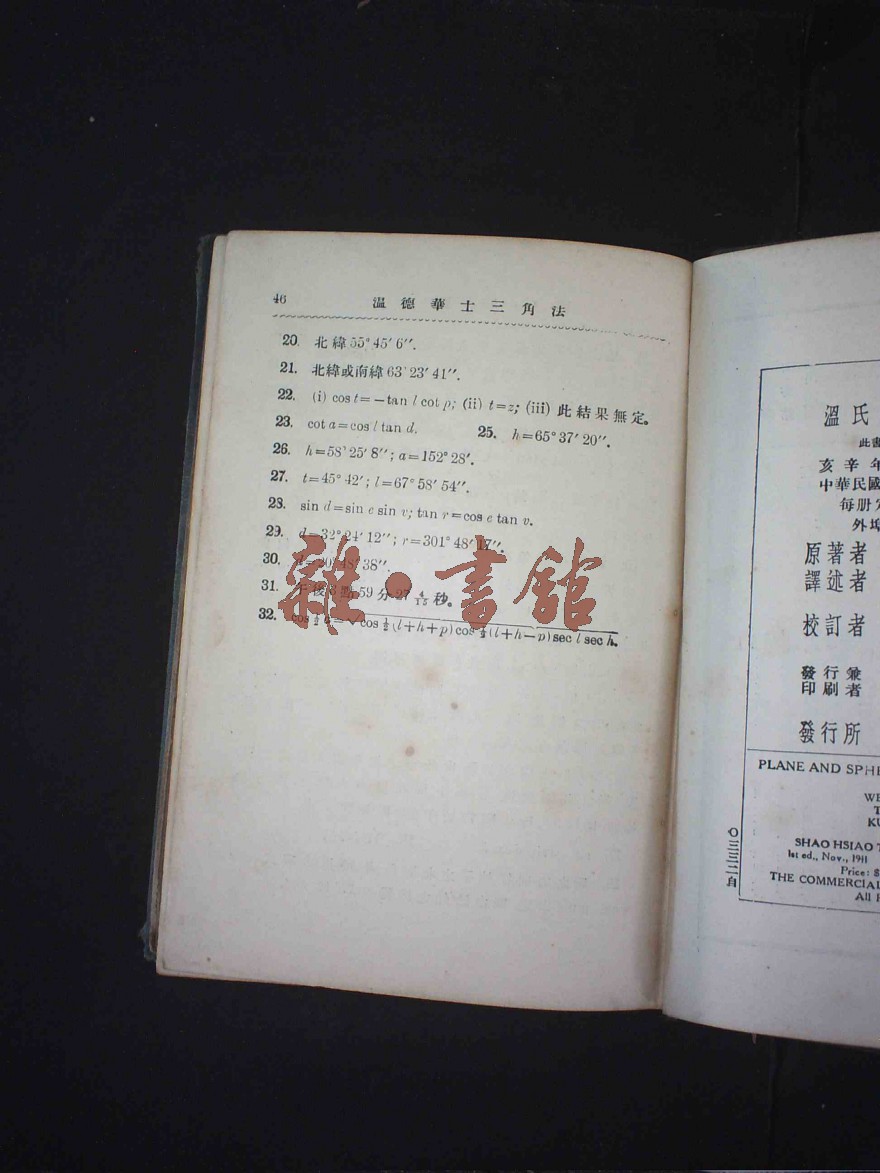 46 溫德華士三角法
20. 北緯 55° 45′ 6″.
21. 北緯或南緯 63° 23′ 41″.
22. (i) cos t = −tan l cot p; (ii) t = z; (iii) 此結果無定。
23. cot a = cos l tan d. 25. h = 65° 37′ 20″.
26. h = 58° 25′ 8″; a = 152° 28′.
27. t = 45° 42′; l = 67° 58′ 54″.
28. sin d = sin e sin v; tan r = cos e tan v.
29. d = 32° 24′ 12″; r = 301° 48′ 17″.
30. 48′ 38″.
31. 午後 點 59 分 27 4/15 秒。
32. cos ½ = √cos ½ (l+h+p) cos ½ (l+h−p) sec l sec h.
雜·書館
溫氏
此書
亥辛年
中華民國
每册定
外埠
原著者
譯述者
校訂者
發行兼
印刷者
發行所
PLANE AND SPHE
WE
T
KU
SHAO HSIAO T
1st ed., Nov., 1911
Price: $
THE COMMERCIAL
All R
〇三三二自